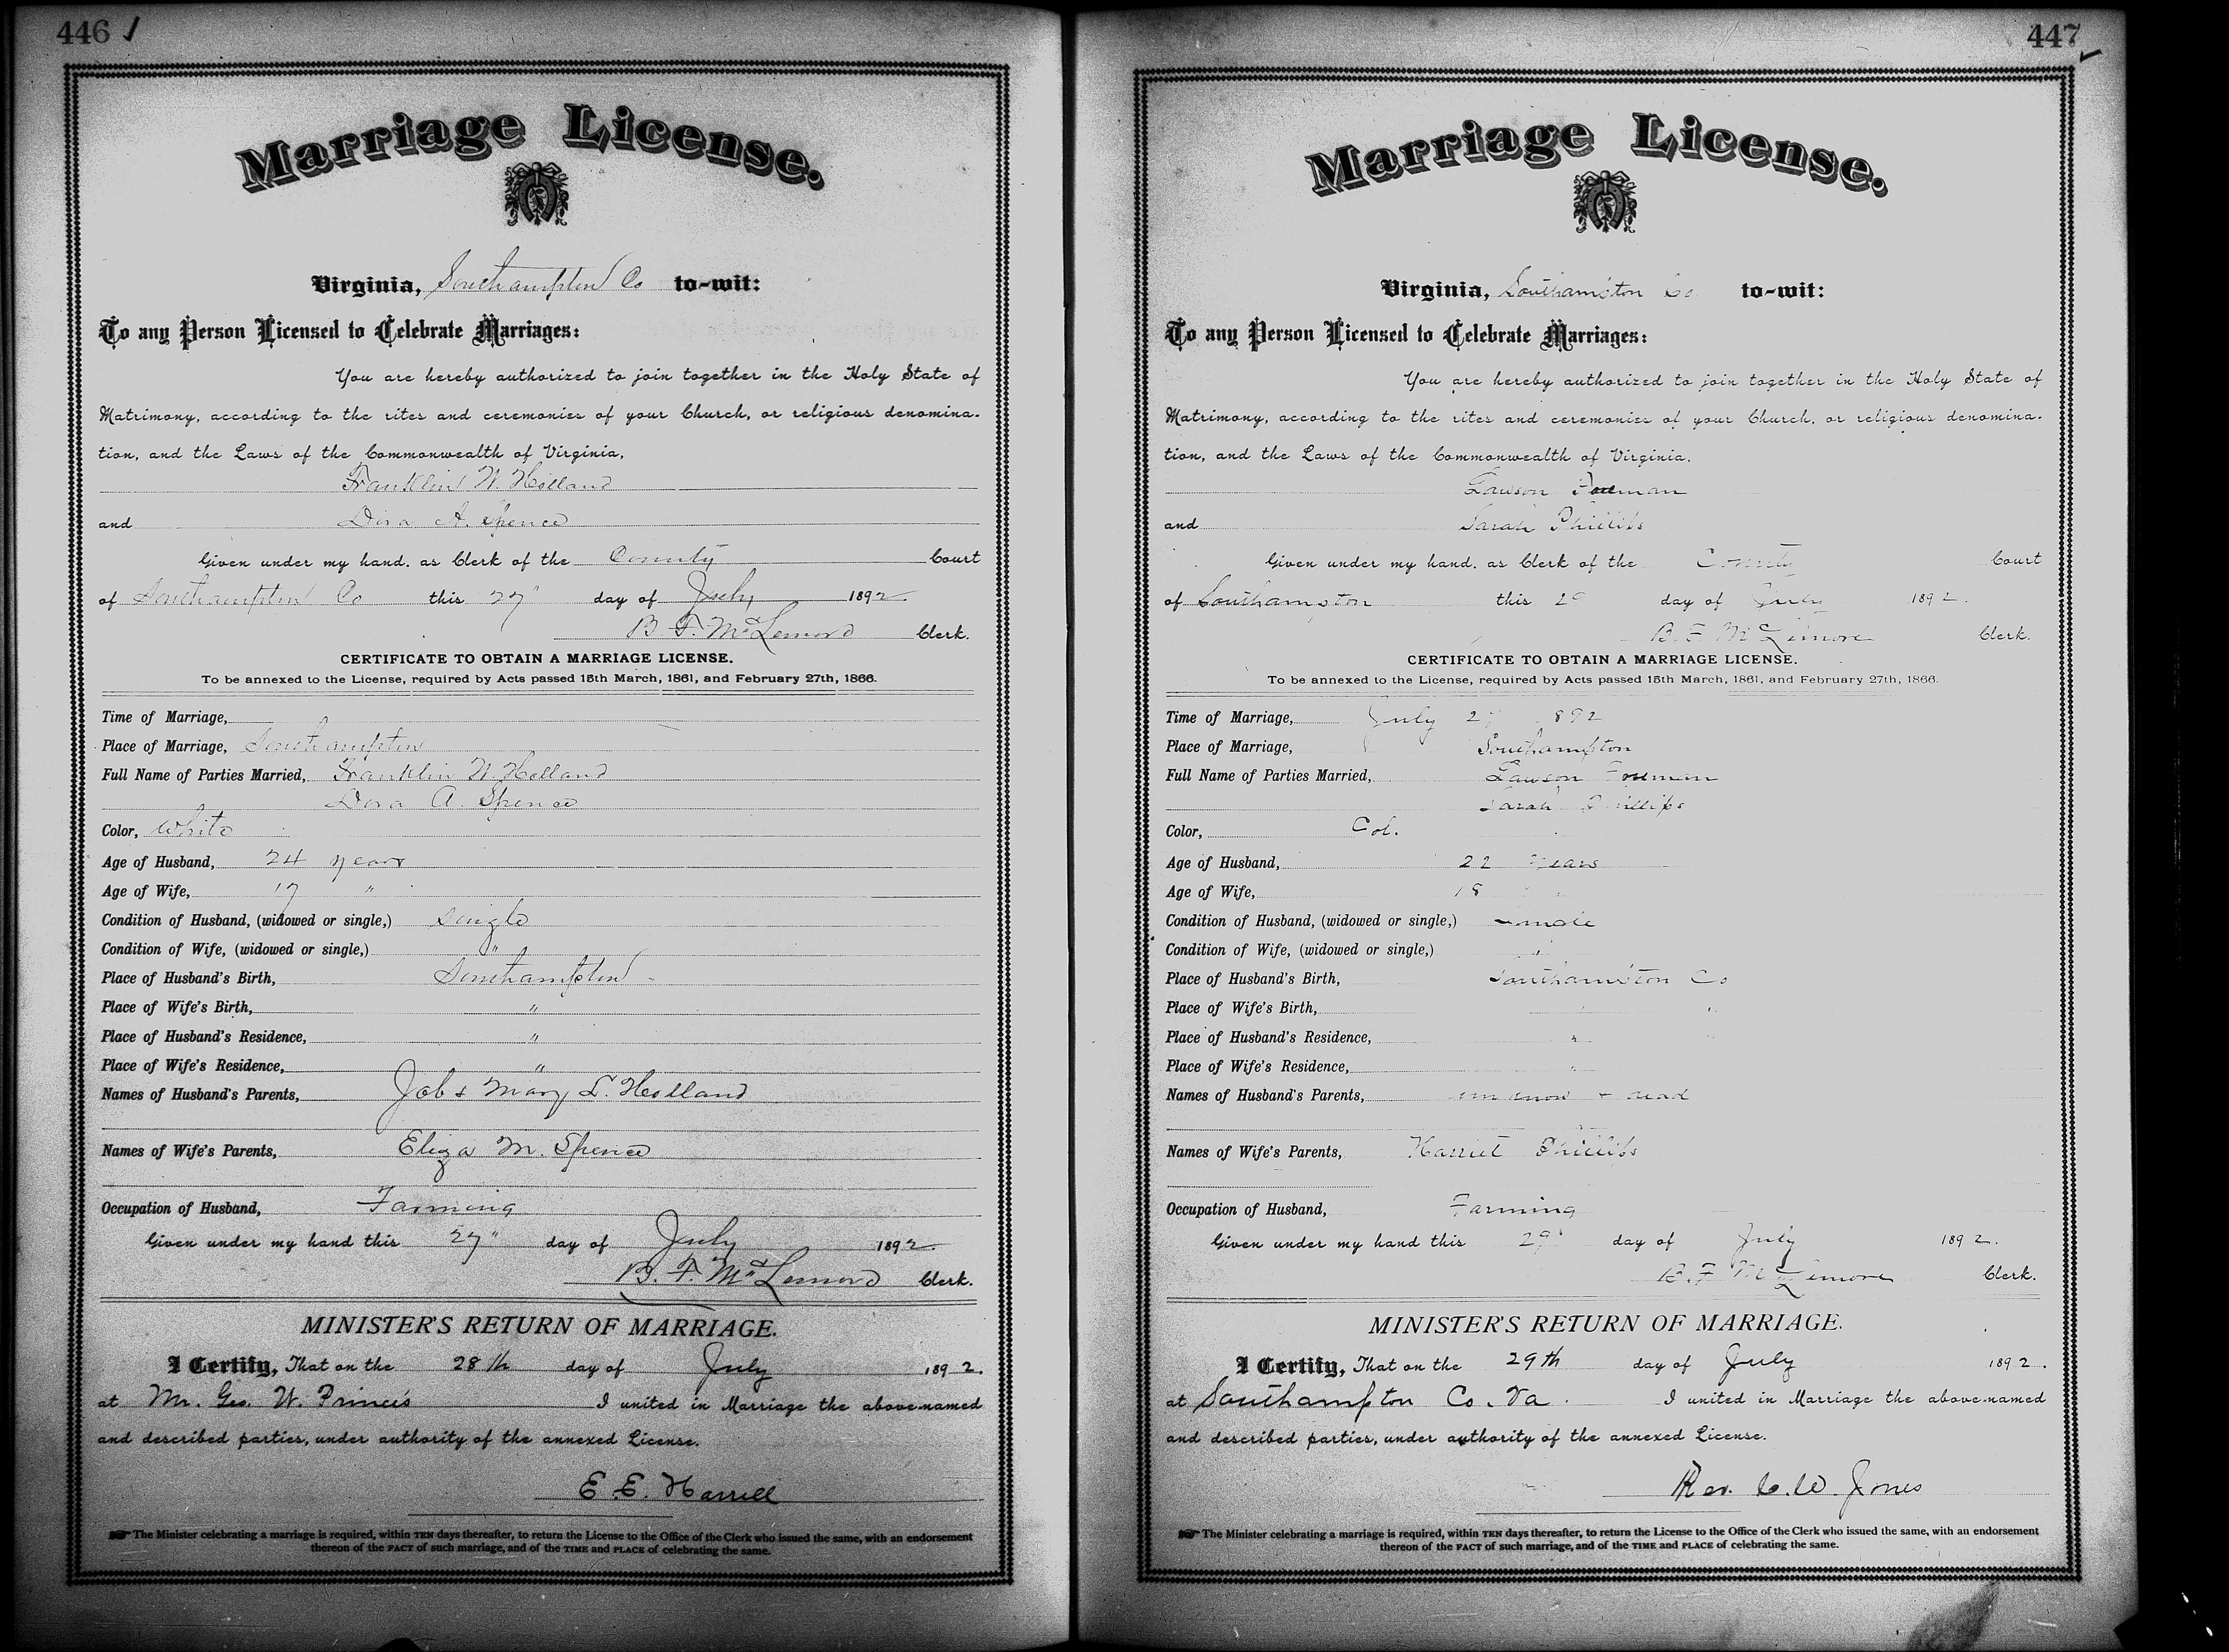 446
Marriage License.
Virginia, Southampton Co to-wit:
To any Person Licensed to Celebrate Marriages:
You are hereby authorized to join together in the Holy State of
Matrimony, according to the rites and ceremonies of your Church, or religious denomina-
tion, and the Laws of the Commonwealth of Virginia,
Franklin W. Holland
and Dora A. Spence
Given under my hand, as Clerk of the County Court
of Southampton Co this 27" day of July 1892.
B. F. McLemore Clerk.
CERTIFICATE TO OBTAIN A MARRIAGE LICENSE.
To be annexed to the License, required by Acts passed 15th March, 1861, and February 27th, 1866.
Time of Marriage,
Place of Marriage, Southampton
Full Name of Parties Married, Franklin W. Holland
Dora A. Spence
Color, White
Age of Husband, 24 years
Age of Wife, 17 "
Condition of Husband, (widowed or single,) Single
Condition of Wife, (widowed or single,) "
Place of Husband's Birth, Southampton
Place of Wife's Birth, "
Place of Husband's Residence, "
Place of Wife's Residence, "
Names of Husband's Parents, Job & Mary L. Holland
Names of Wife's Parents, Eliza M. Spence
Occupation of Husband, Farming
Given under my hand this 27" day of July 1892.
B. F. McLemore Clerk.
MINISTER'S RETURN OF MARRIAGE.
I Certify, That on the 28th day of July, 1892.
at Mr. Geo. W. Prince's I united in Marriage the above-named
and described parties, under authority of the annexed License.
E. E. Harrell
The Minister celebrating a marriage is required, within TEN days thereafter, to return the License to the Office of the Clerk who issued the same, with an endorsement
thereon of the FACT of such marriage, and of the TIME and PLACE of celebrating the same.
447
Marriage License.
Virginia, Southampton Co to-wit:
To any Person Licensed to Celebrate Marriages:
You are hereby authorized to join together in the Holy State of
Matrimony, according to the rites and ceremonies of your Church, or religious denomina-
tion, and the Laws of the Commonwealth of Virginia,
Lawson
and Sarah Phillips
Given under my hand, as Clerk of the County Court
of Southampton this day of July 1892.
B. F. McLemore Clerk.
CERTIFICATE TO OBTAIN A MARRIAGE LICENSE.
To be annexed to the License, required by Acts passed 15th March, 1861, and February 27th, 1866.
Time of Marriage, July 1892
Place of Marriage, Southampton
Full Name of Parties Married, Lawson
Sarah Phillips
Color, Col.
Age of Husband, 22 years
Age of Wife, 18
Condition of Husband, (widowed or single,) single
Condition of Wife, (widowed or single,) "
Place of Husband's Birth, Southampton Co
Place of Wife's Birth, " "
Place of Husband's Residence, "
Place of Wife's Residence, "
Names of Husband's Parents, unknow + dead
Names of Wife's Parents, Harriet Phillips
Occupation of Husband, Farming
Given under my hand this 29" day of July 1892.
B. F. McLemore Clerk.
MINISTER'S RETURN OF MARRIAGE.
I Certify, That on the 29th day of July 1892.
at Southampton Co. Va. I united in Marriage the above-named
and described parties, under authority of the annexed License.
Rev. C. W. Jones
The Minister celebrating a marriage is required, within TEN days thereafter, to return the License to the Office of the Clerk who issued the same, with an endorsement
thereon of the FACT of such marriage, and of the TIME and PLACE of celebrating the same.